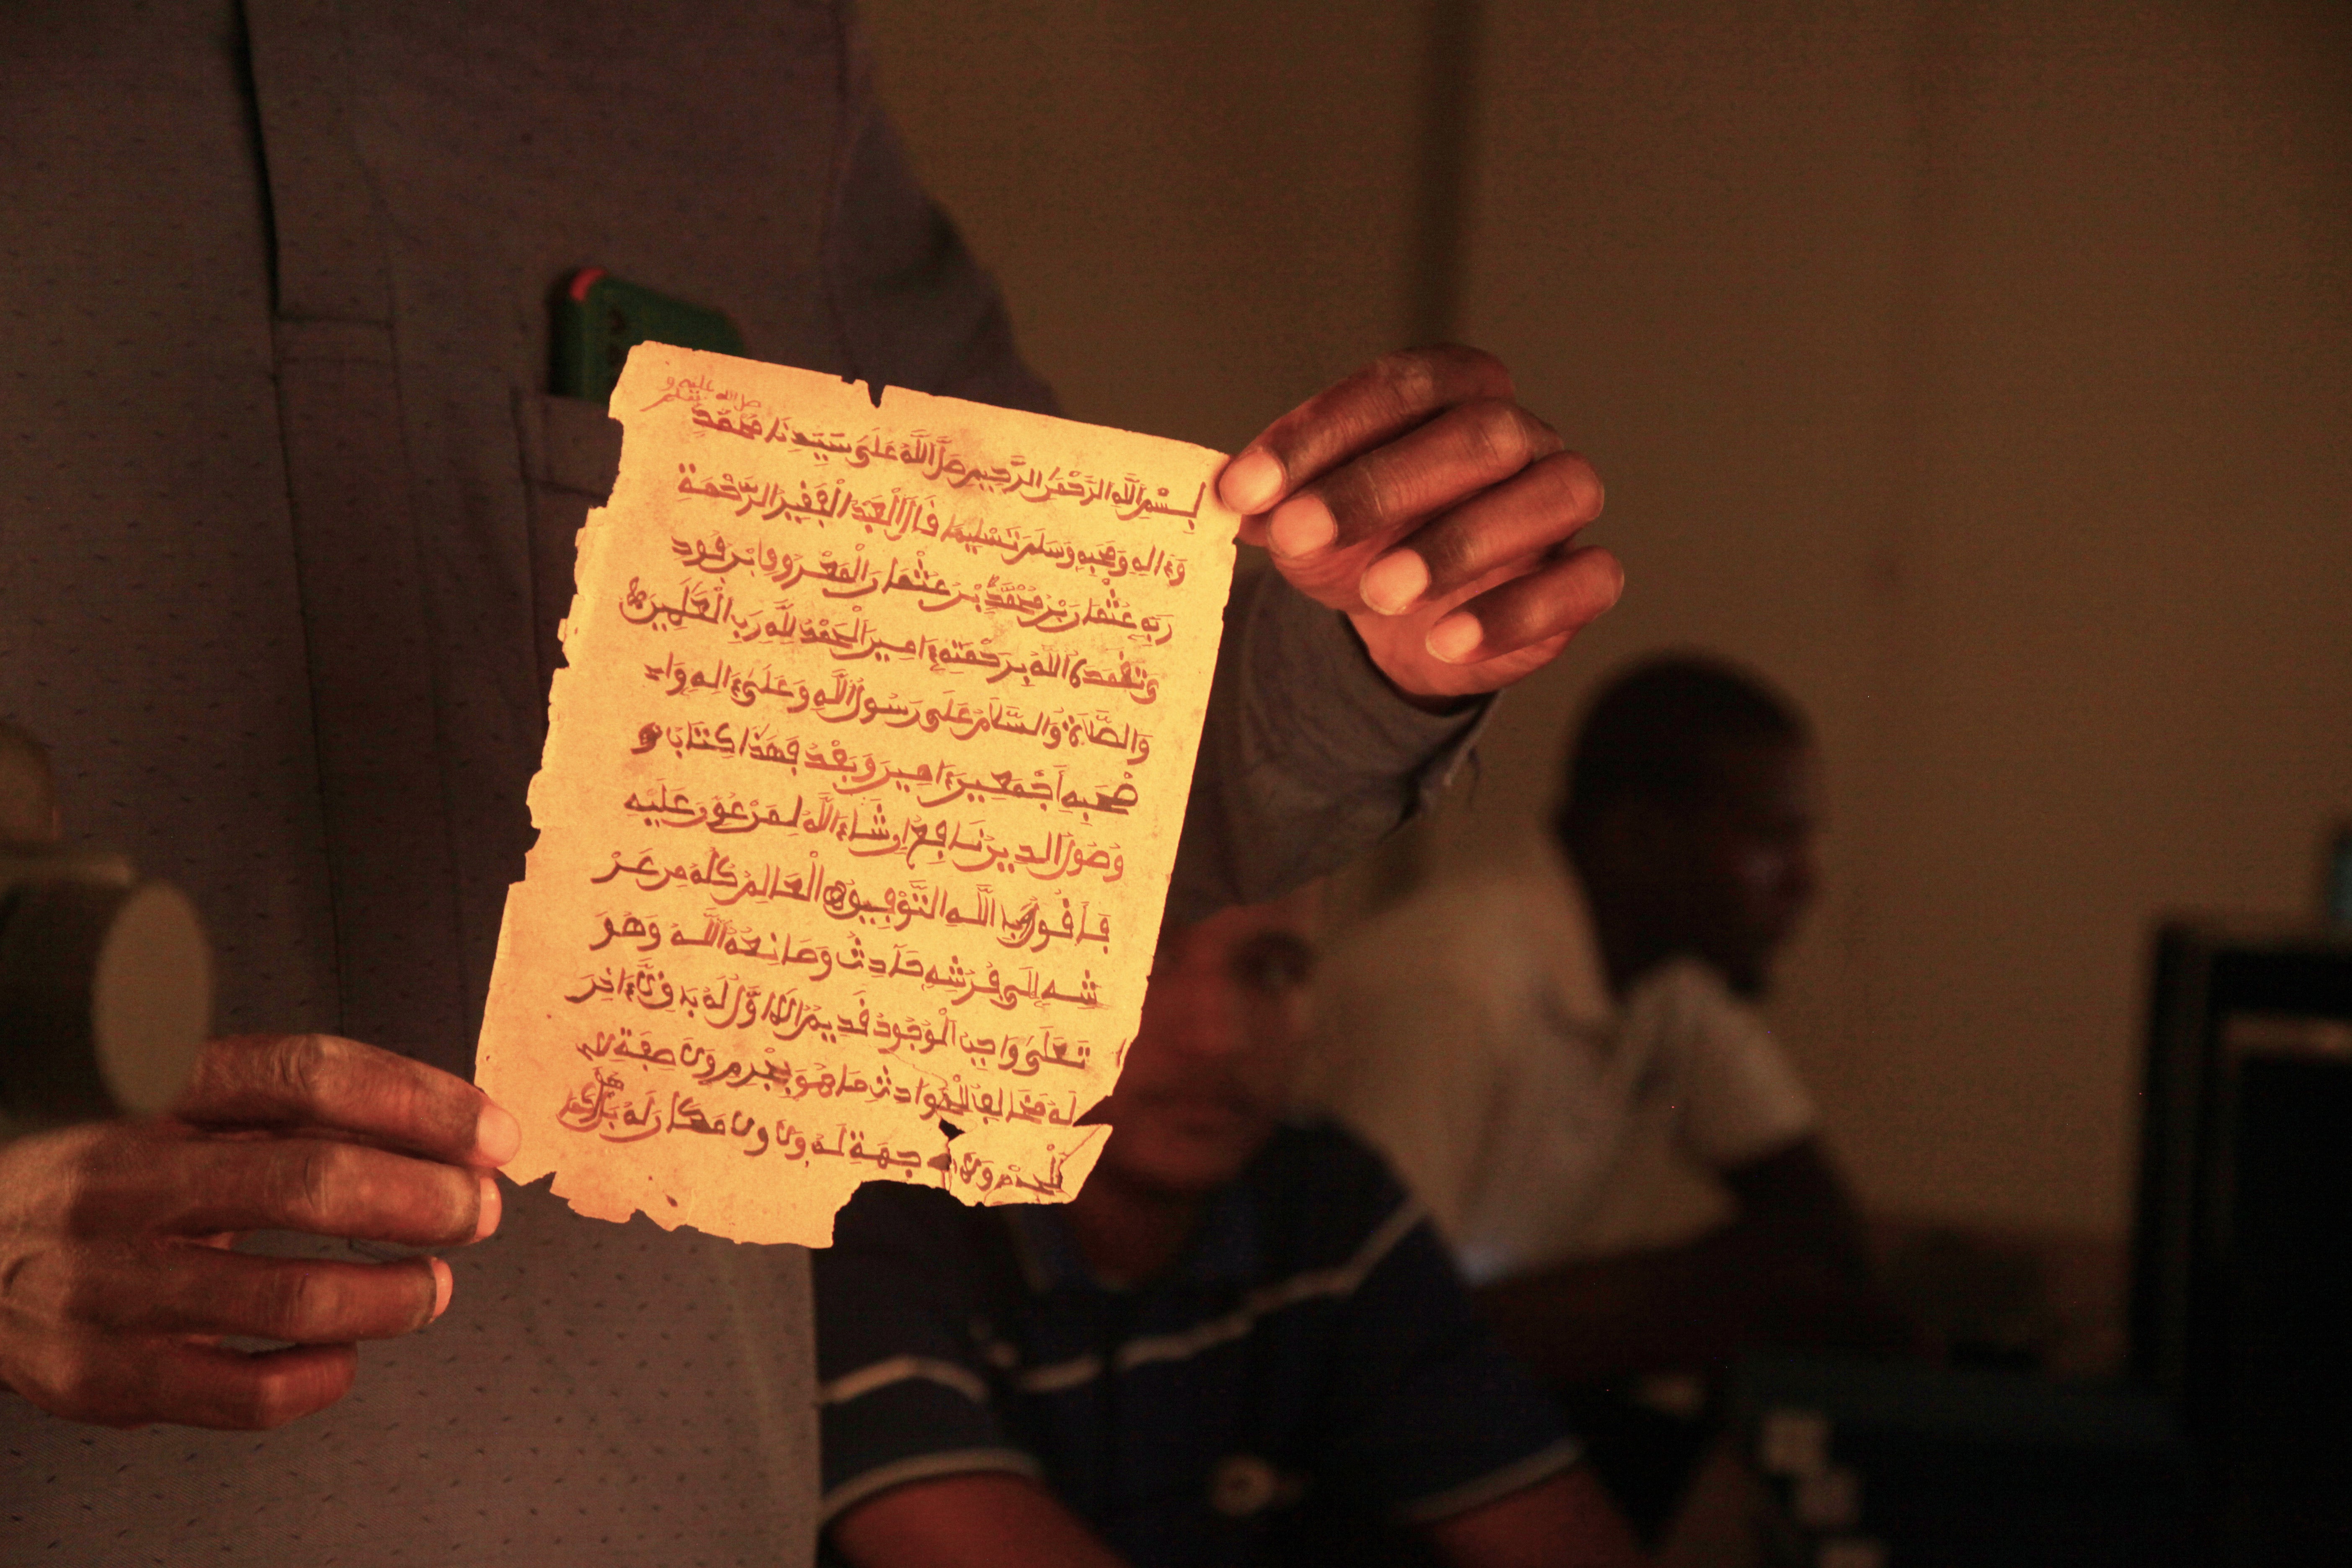 صل الله عليه و
سلم
بِسْمِ اللَّهِ الرَّحْمَٰنِ الرَّحِيمِ صَلَّ اللَّهُ عَلَى سَيِّدِنَا مُحَمَّدٍ
وَءَالِهِ وَصَحْبِهِ وَسَلَّمَ تَسْلِيمًا قَالَ الْعَبْدُ الْفَقِيرُ الرَّحْمَةِ
رَبِّهِ عُثْمَانَ بْنِ مُحَمَّدٍ بْنِ عُثْمَانَ الْمَعْرُوفِ ابْنِ فُودِ
يَ تَغَمَّدَهُ اللَّهُ بِرَحْمَتِهِ ءَامِينَ الْحَمْدُ لِلَّهِ رَبِّ الْعَٰلَمِينَ
وَالصَّلَاةُ وَالسَّلَامُ عَلَى رَسُولِ اللَّهِ وَعَلَى ءَالِهِ وَا
صْحَبِهِ أَجْمَعِينَ ءَامِينَ وَبَعْدُ فَهَذَا كِتَابُ
وُصُولُ الدِّينِ نَافِعٌ إِن شَاءَ اللَّهُ لِمَنْ عَوَّلَ عَلَيْهِ
فَأَقُولُ بِاللَّهِ التَّوْفِيقُ الْعَالَمُ كُلُّهُ مِنْ عَرْ
شِهِ إِلَى فُرْشِهِ حَادِثٌ وَصَانِعُهُ اللَّهُ وَهُوَ
تَعَلَىٰ وَاجِبُ الْوُجُودِ قَدِيمٌ لَا أَوَّلَ لَهُ بَاقٍ لَا ءَاخِرَ
لَهُ مُخَالِفٌ لِلْحَوَادِثِ مَا هُوَ بِجِرْمٍ وَلَا صِفَةٍ
لِلْجِرْمِ وَلَا جِهَةَ لَهُ وَلَا مَكَانَ لَهُ بَلْ